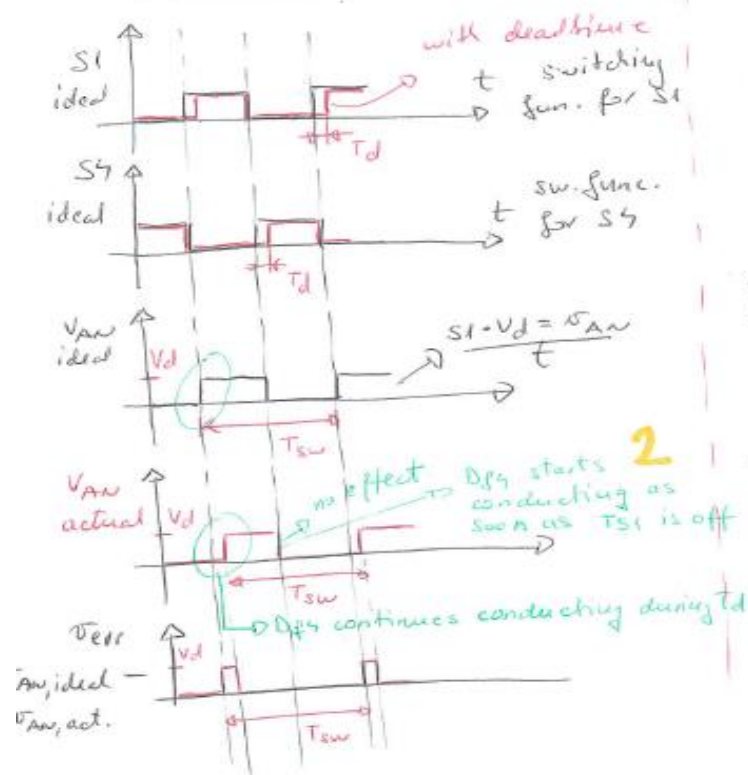 with deadtime
S1
ideal
t switching
fun. for S1
Td
S4
ideal
t sw. func.
for S4
Td
VAN
ideal
Vd
S1 · Vd = VAN
t
Tsw
2
VAN
actual
Vd
no effect
Df4 starts
conducting as
soon as TS1 is off
Tsw
Df4 continues conducting during td
Verr
Vd
AN, ideal –
VAN, act.
Tsw